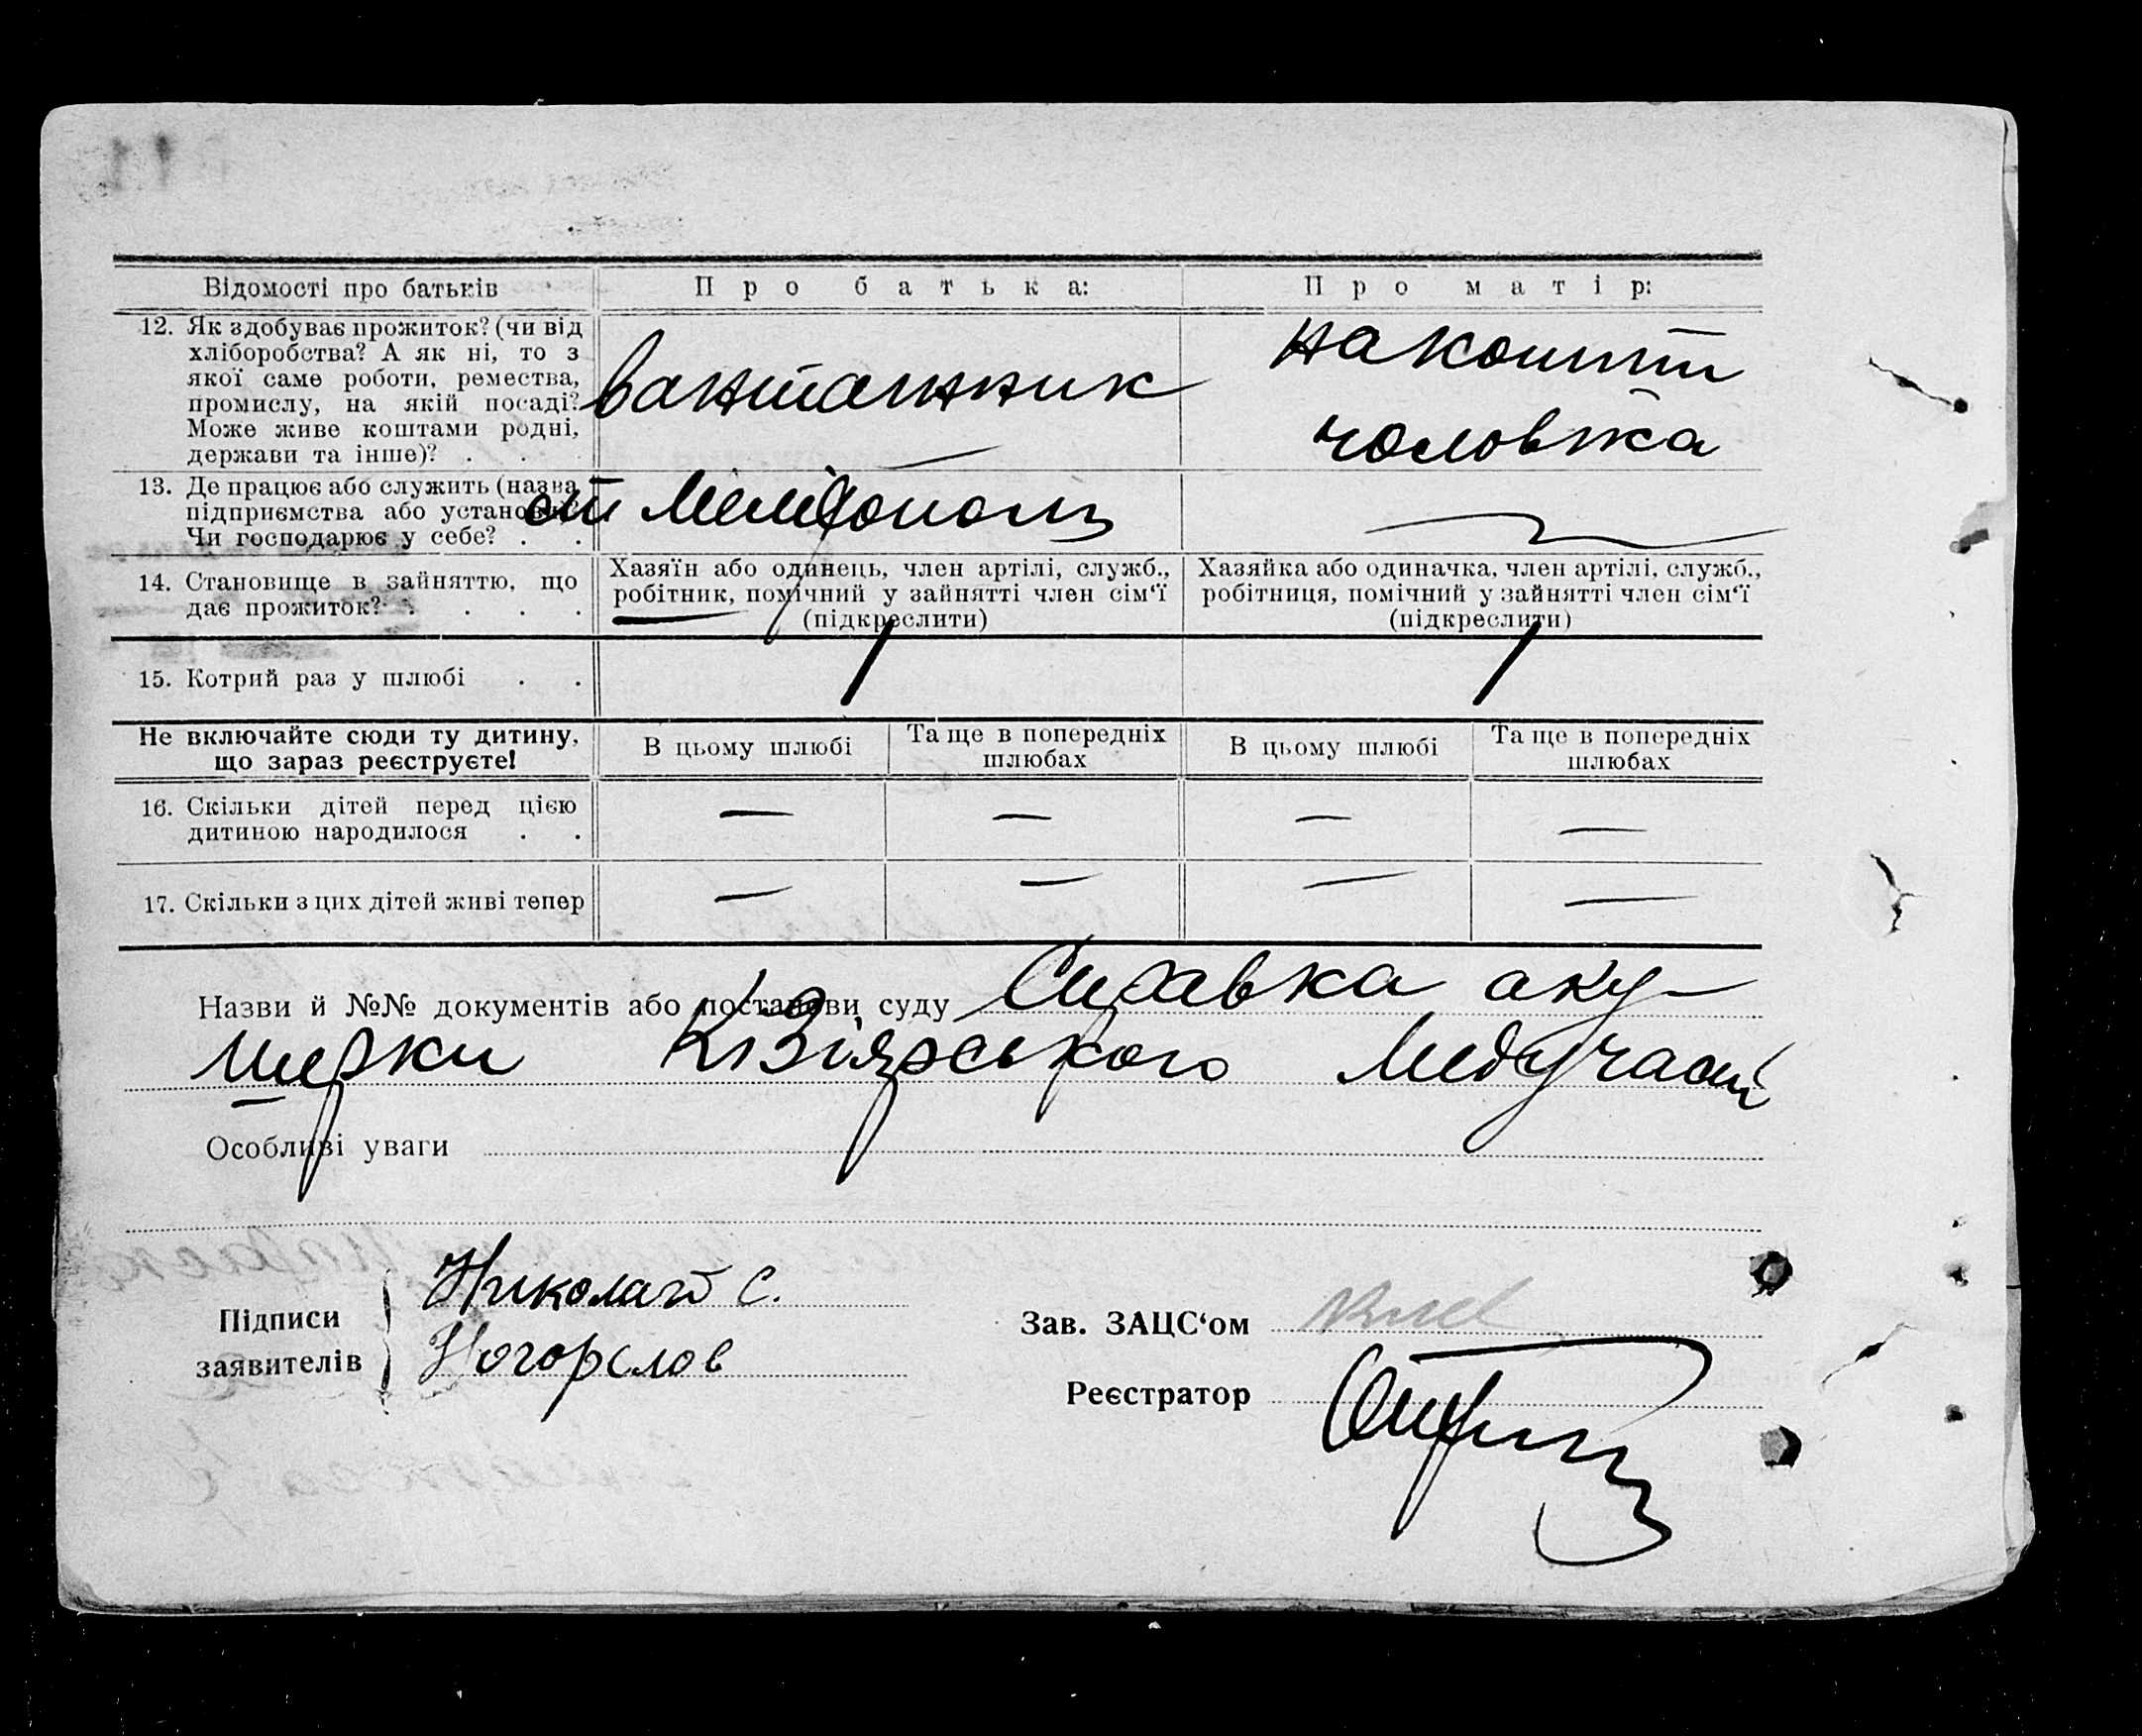 Відомості про батьків
Про батька:
Про матір:
12. Як здобуває прожиток? (чи від
хліборобства? А як ні, то з
якої саме роботи, ремества,
промислу, на якій посаді?
Може живе коштами родні,
держави та інше)? . . .
вантажник
на кошти
чоловіка
13. Де працює або служить (назва
підприємства або установи)?
Чи господарює у себе? . .
ст Мелітополь
—
14. Становище в зайняттю, що
дає прожиток? . . . .
Хазяїн або одинець, член артілі, служб.,
робітник, помічний у зайнятті член сім‘ї
(підкреслити)
Хазяйка або одиначка, член артілі, служб.,
робітниця, помічний у зайнятті член сім‘ї
(підкреслити)
15. Котрий раз у шлюбі . .
1
1
Не включайте сюди ту дитину,
що зараз реєструєте!
В цьому шлюбі
Та ще в попередніх
шлюбах
В цьому шлюбі
Та ще в попередніх
шлюбах
16. Скільки дітей перед цією
дитиною народилося . .
— — — —
17. Скільки з цих дітей живі тепер
— — — —
Назви й №№ документів або постанови суду Справка аку-
шерки Кізіярського Медучаст
Особливі уваги
Підписи
заявителів
Николай С.
Ногорслов
Зав. ЗАЦС‘ом
Реєстратор